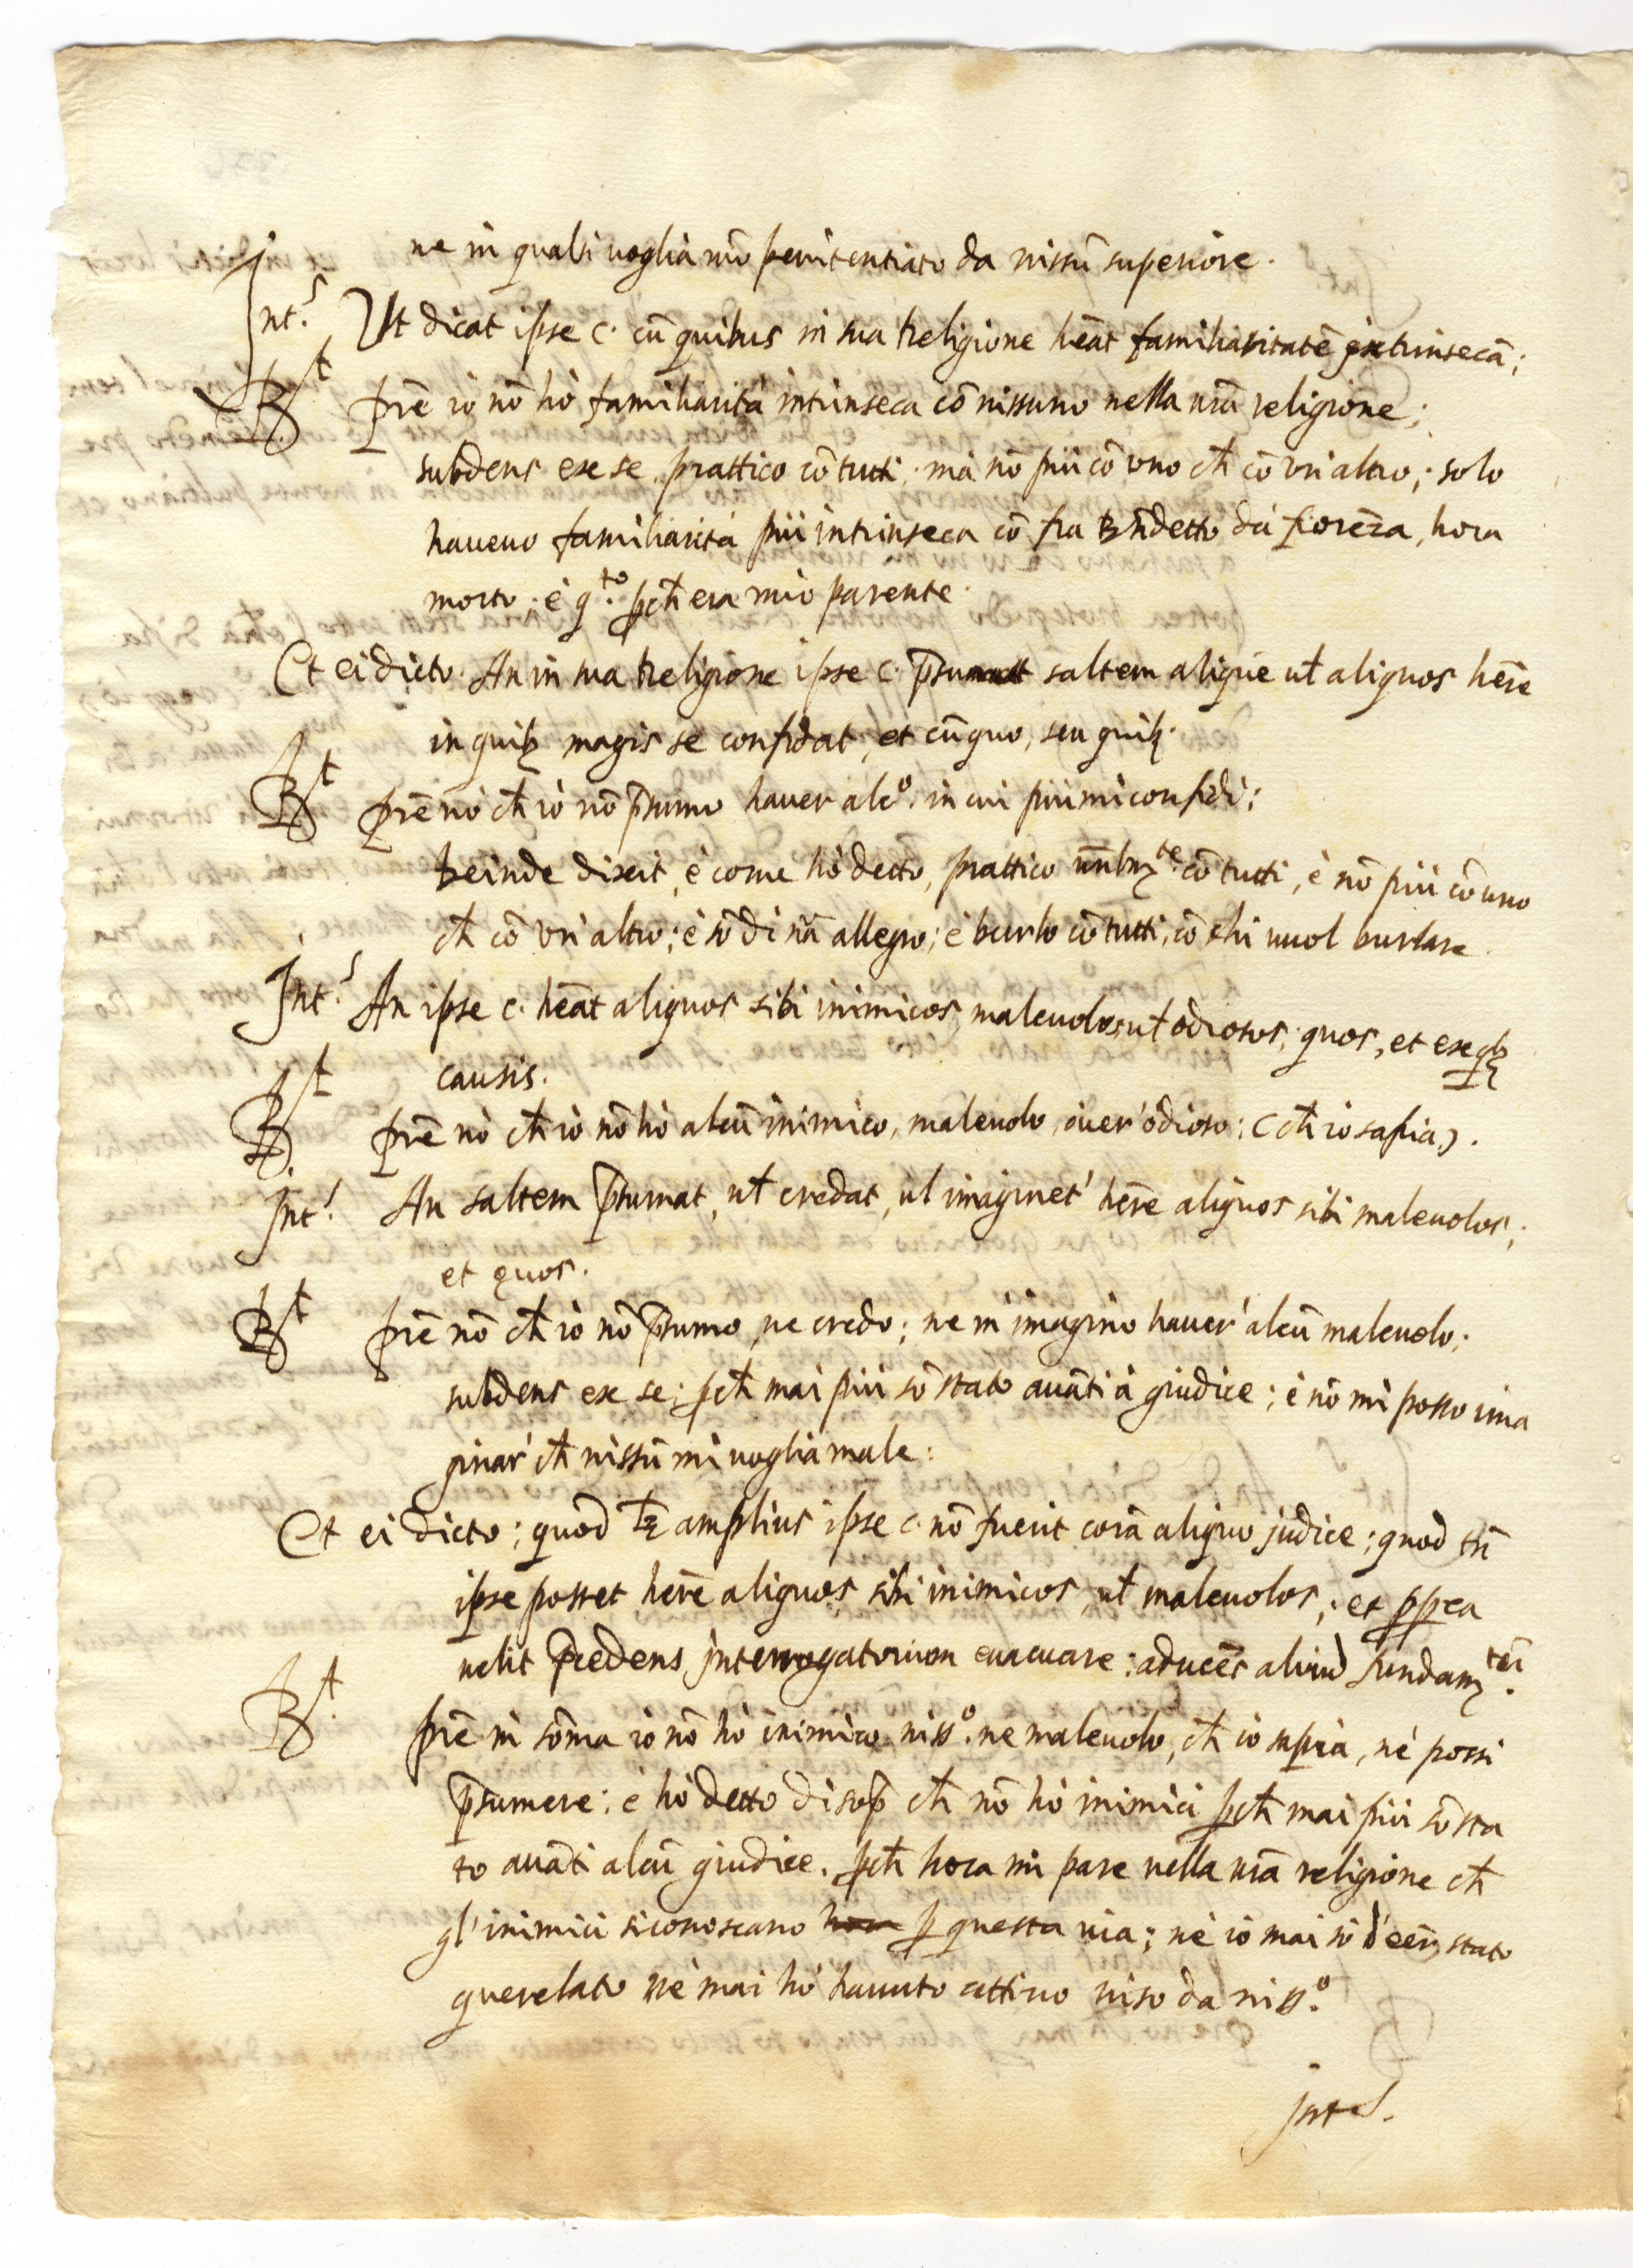 ne in qualsi uoglia mō penitentiato da nissū superiore.
Int.s Ut dicat ipse c. cū quibus in sua Religione hēat familiaritatē intrinsecā;
Rt prē io nō hò familiarità intrinseca cō nissuno nella nrā religione;
subdens ex se prattico cō tutti. mà nō più cō uno ch̄ cō un'altro; solo
haueuo familiarità più intrinseca cō fra Bn̄detto da fiorēza, hora
morto; è q.to pch̄ era mio parente.
Et ei dicto. An in sua Religione ipse c. p̄sumat saltem aliquē ut̄ aliquos hēre
in quib; magis se confidat, et cū quo, seu quib;.
Rt prē nò ch̄ io nō p̄sumo hauer alc.o in cui più mi confidi:
Deinde dixit, è come hò detto, prattico un̄lm.te cō tutti, è nō più cō uno
ch̄ cō un'altro; è sō di nā allegro; è burlo cō tutti, cō chi uuol burlare.
Int.s An ipse c. hēat aliquos sibi inimicos, maleuolos, ut̄ odiosos; quos, et ex qb;
causis.
Rt prē nò ch̄ io nō hò alcū inimico, maleuolo, ouer' odioso: (ch̄ io sapia).
Int.s An saltem p̄sumat, ut̄ credat, ul imaginet' hēre aliquos sibi maleuolos;
et quos.
Rt prē nō ch̄ io nō p̄sumo, ne credo; ne m'imagino hauer' alcū maleuolo;
subdens ex se; pch̄ mai più sō stato auāti à giudice; è nō mi posso ima
ginar' ch̄ nissū mi uoglia male:
Et ei dicto; quod l; amplius ipse c. nō fuerit corā aliquo judice; quod tn̄
ipse posset hēre aliquos sibi inimicos, ut̄ maleuolos; et ppea
uelit p̄cedens Interrogatorium euacuare; aducēs aliud fundam.tū
Rt prē in sōma io nō hò inimico niss.o ne maleuolo, ch̄ io sapia, nè possi
p̄sumere; è hò detto di sop̄ ch̄ nō hò inimici pch̄ mai più sō sta
to auāti alcū giudice. pch̄ hora mi pare nella nrā religione ch̄
gl'inimici si conoscano p questa uia; nè io mai sō d'eēr stato
querelato nè mai hò hauuto cattiuo uiso da niss.o
Int.s